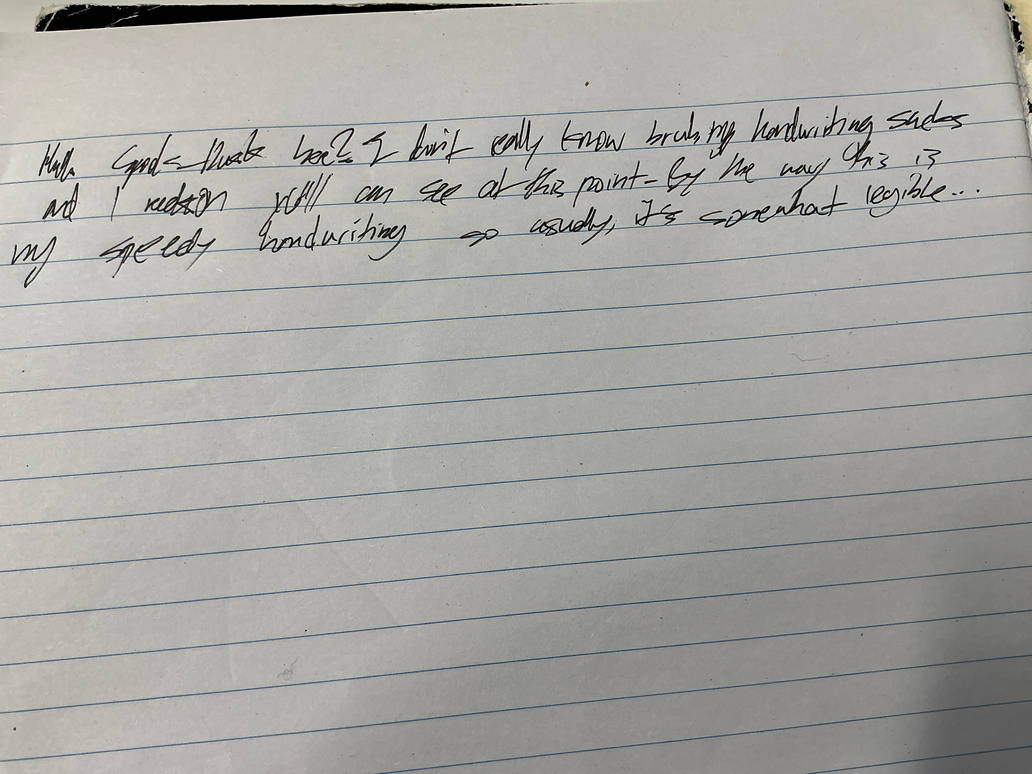 don't really know bruh my handwriting sucks
and I reckon y'all can see at this point- By the way this is
my speedy handwriting so usually, it's somewhat legible...